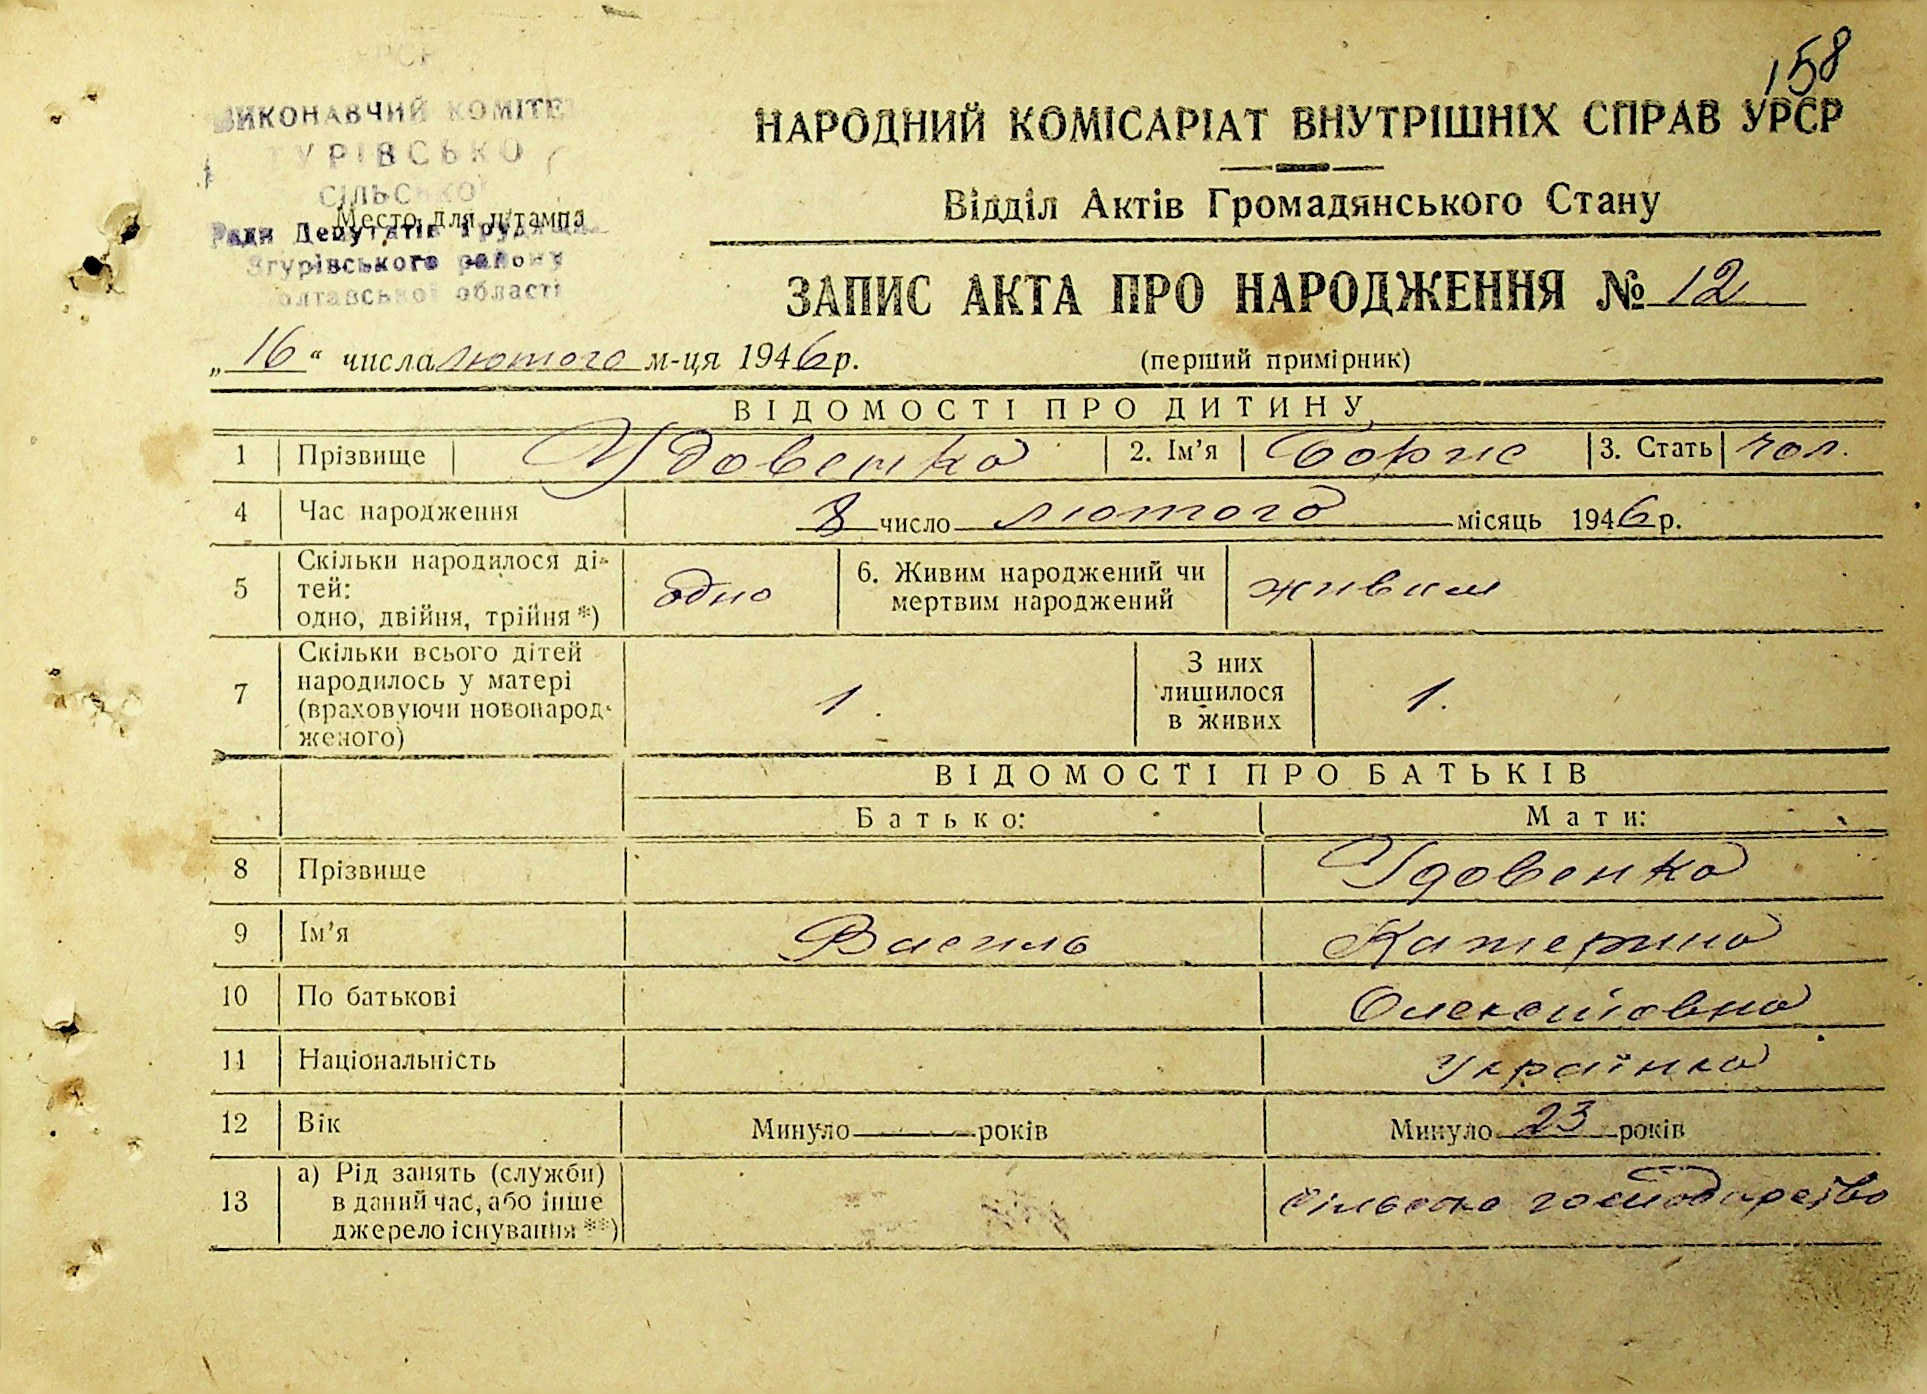 158
УРСР
ВИКОНАВЧИЙ КОМІТЕТ
ТУРІВСЬКО
СІЛЬСЬКОЇ
Место для штампа
Ради Депутатів Трудящих
Згурівського району
Полтавської області
НАРОДНИЙ КОМІСАРІАТ ВНУТРІШНІХ СПРАВ УРСР
Відділ Актів Громадянського Стану
ЗАПИС АКТА ПРО НАРОДЖЕННЯ № 12
„16“ числа лютого м-ця 1946 р.
(перший примірник)
ВІДОМОСТІ ПРО ДИТИНУ
1 Прізвище Удовенко 2. Ім’я Борис 3. Стать чол.
4 Час народження 8 число лютого місяць 1946 р.
5 Скільки народилося ді-
тей:
одно, двійня, трійня *) одно 6. Живим народжений чи
мертвим народжений живим
7 Скільки всього дітей
народилось у матері
(враховуючи новонарод-
женого) 1. З них
лишилося
в живих 1.
ВІДОМОСТІ ПРО БАТЬКІВ
Батько: Мати:
8 Прізвище Удовенко
9 Ім’я Василь Катерина
10 По батькові Олексіївна
11 Національність Українка
12 Вік Минуло років Минуло 23 років
13 а) Рід занять (служби)
в даний час, або інше
джерело існування **) сільське господарство